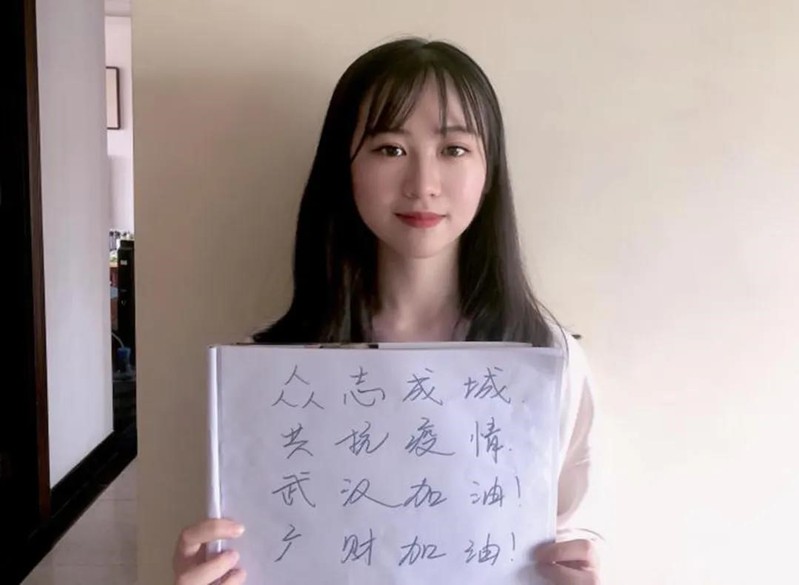 众志成城.
共抗疫情.
武汉加油!
广财加油!